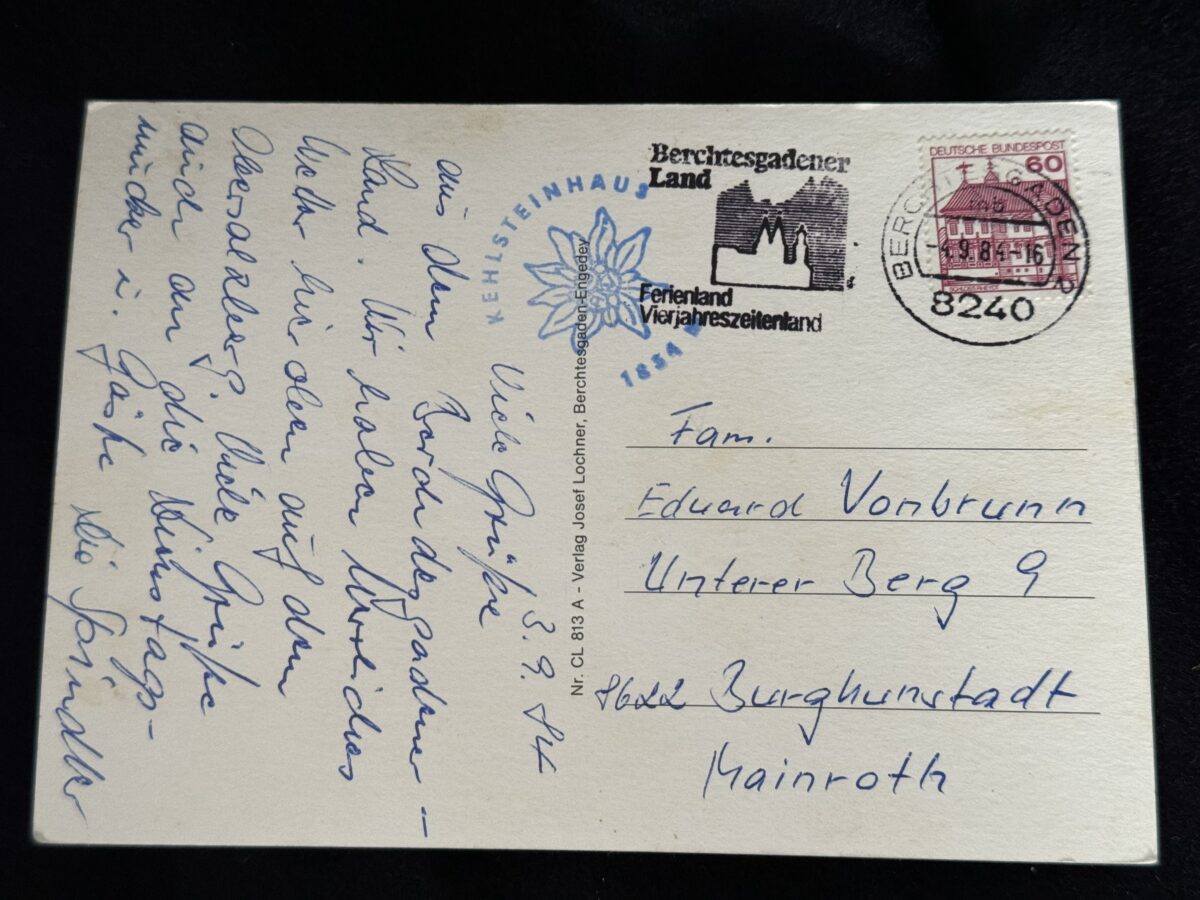 3.9.84
Viele Grüße
aus dem Berchtesgadener-
Land. Wir haben herrliches
Wetter hier oben auf dem
Obersalzberg. Viele Grüße
auch an die
Gäste
Die Spindler
KEHLSTEINHAUS
1834 M
Nr. CL 813 A - Verlag Josef Lochner, Berchtesgaden-Engedey
Berchtesgadener
Land
Ferienland
Vierjahreszeitenland
DEUTSCHE BUNDESPOST
60
SCHLOSS RHEYDT
BERCHTESGADEN 2
-4.9.84-16
8240
Fam.
Eduard Vonbrunn
Unterer Berg 9
8622 Burgkunstadt
Mainroth